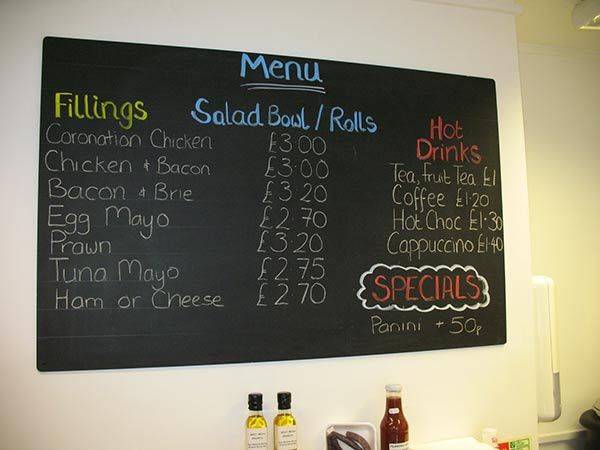 Menu
Fillings
Salad Bowl / Rolls
Coronation Chicken £3.00
Chicken & Bacon £3.00
Bacon & Brie £3.20
Egg Mayo £2.70
Prawn £3.20
Tuna Mayo £2.75
Ham or Cheese £2.70
Hot
Drinks
Tea, Fruit Tea £1
Coffee £1.20
Hot Choc £1.30
Cappuccino £1.40
SPECIALS
Panini + 50p